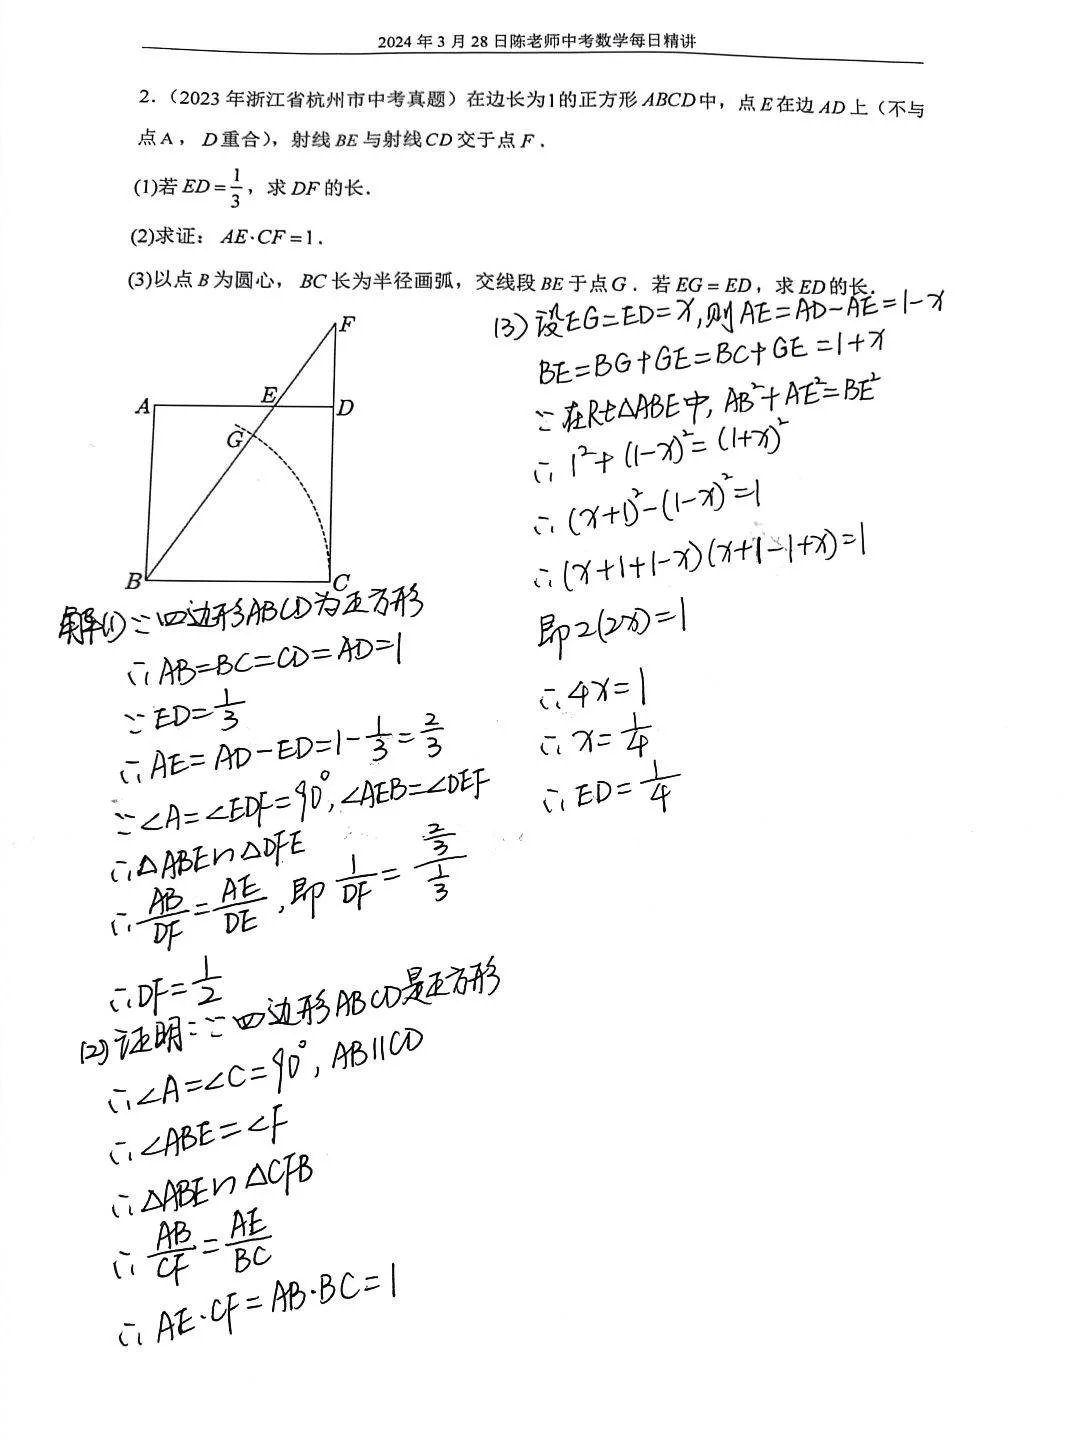 2024年3月28日陈老师中考数学每日精讲
2.（2023年浙江省杭州市中考真题）在边长为1的正方形ABCD中，点E在边AD上（不与
点A，D重合），射线BE与射线CD交于点F.
(1)若ED=1/3，求DF的长.
(2)求证：AE·CF=1.
(3)以点B为圆心，BC长为半径画弧，交线段BE于点G.若EG=ED，求ED的长.
F
A E D
G
B C
解(1)∵四边形ABCD为正方形
∴AB=BC=CD=AD=1
∵ED=1/3
∴AE=AD-ED=1-1/3=2/3
∵∠A=∠EDF=90°,∠AEB=∠DEF
∴△ABE∽△DFE
∴AB/DF=AE/DE,即1/DF=(2/3)/(1/3)
∴DF=1/2
(2)证明:∵四边形ABCD是正方形
∴∠A=∠C=90°,AB∥CD
∴∠ABE=∠F
∴△ABE∽△CFB
∴AB/CF=AE/BC
∴AE·CF=AB·BC=1
(3)设EG=ED=x,则AE=AD-AE=1-x
BE=BG+GE=BC+GE=1+x
∵在Rt△ABE中,AB²+AE²=BE²
∴1²+(1-x)²=(1+x)²
∴(x+1)²-(1-x)²=1
∴(x+1+1-x)(x+1-1+x)=1
即2(2x)=1
∴4x=1
∴x=1/4
∴ED=1/4